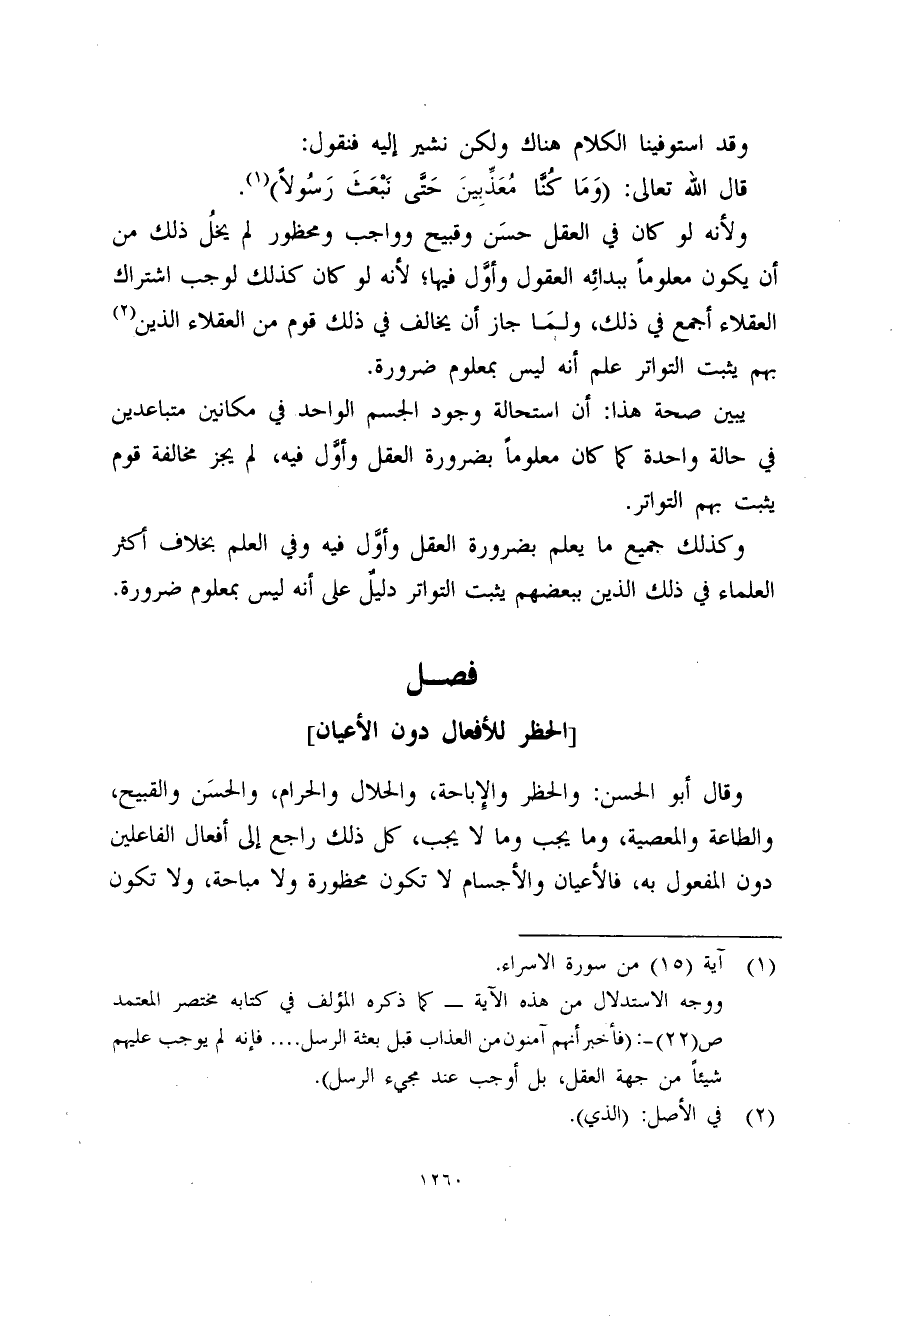 وقد استوفينا الكلام هناك ولكن نشير إليه فنقول:
قال الله تعالى: (وَمَا كُنَّا مُعَذِّبِينَ حَتَّى نَبْعَثَ رَسُولاً)(١).
ولأنه لو كان في العقل حسَن وقبيح وواجب ومحظور لم يخلُ ذلك من
أن يكون معلوماً ببدائِه العقول وأوَّل فيها؛ لأنه لو كان كذلك لوجب اشتراك
العقلاء أجمع في ذلك، ولـمَا جاز أن يخالف في ذلك قوم من العقلاء الذين(٢)
بهم يثبت التواتر علم أنه ليس بمعلوم ضرورة.
يبين صحة هذا: أن استحالة وجود الجسم الواحد في مكانين متباعدين
في حالة واحدة كما كان معلوماً بضرورة العقل وأوَّل فيه، لم يجز مخالفة قوم
يثبت بهم التواتر.
وكذلك جميع ما يعلم بضرورة العقل وأوَّل فيه وفي العلم بخلاف أكثر
العلماء في ذلك الذين ببعضهم يثبت التواتر دليلٌ على أنه ليس بمعلوم ضرورة.
فصـــل
[الحظر للأفعال دون الأعيان]
وقال أبو الحسن: والحظر والإباحة، والحلال والحرام، والحسَن والقبيح،
والطاعة والمعصية، وما يجب وما لا يجب، كل ذلك راجع إلى أفعال الفاعلين
دون المفعول به، فالأعيان والأجسام لا تكون محظورة ولا مباحة، ولا تكون
(١) آية (١٥) من سورة الاسراء.
ووجه الاستدلال من هذه الآية — كما ذكره المؤلف في كتابه مختصر المعتمد
ص(٢٢)-: (فأخبر أنهم آمنون من العذاب قبل بعثة الرسل.... فإنه لم يوجب عليهم
شيئاً من جهة العقل، بل أوجب عند مجيء الرسل).
(٢) في الأصل: (الذي).
١٢٦٠